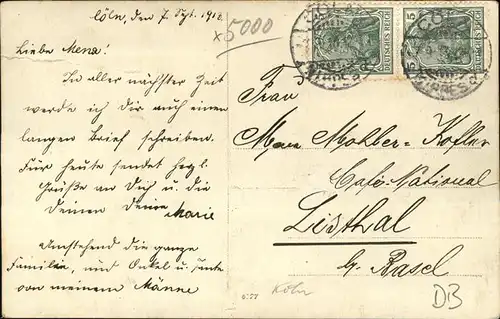 Cöln, den 7. Spt. 1912
x5000
Liebe Mena!
In aller nächster Zeit
werde ich Dir auch einen
langen Brief schreiben.
Für heute sendet herzl.
Grüße an Dich u. die
Deinen Deine
Marie
Umstehend die ganze
Familie, und Onkel u. Tante
von meinem Männe
DEUTSCHES REICH
5
DEUTSCHES REICH
5
CÖLN
Frau
Mohler-Kofler
Café-National
Listhal
by. Basel
Köln
DB